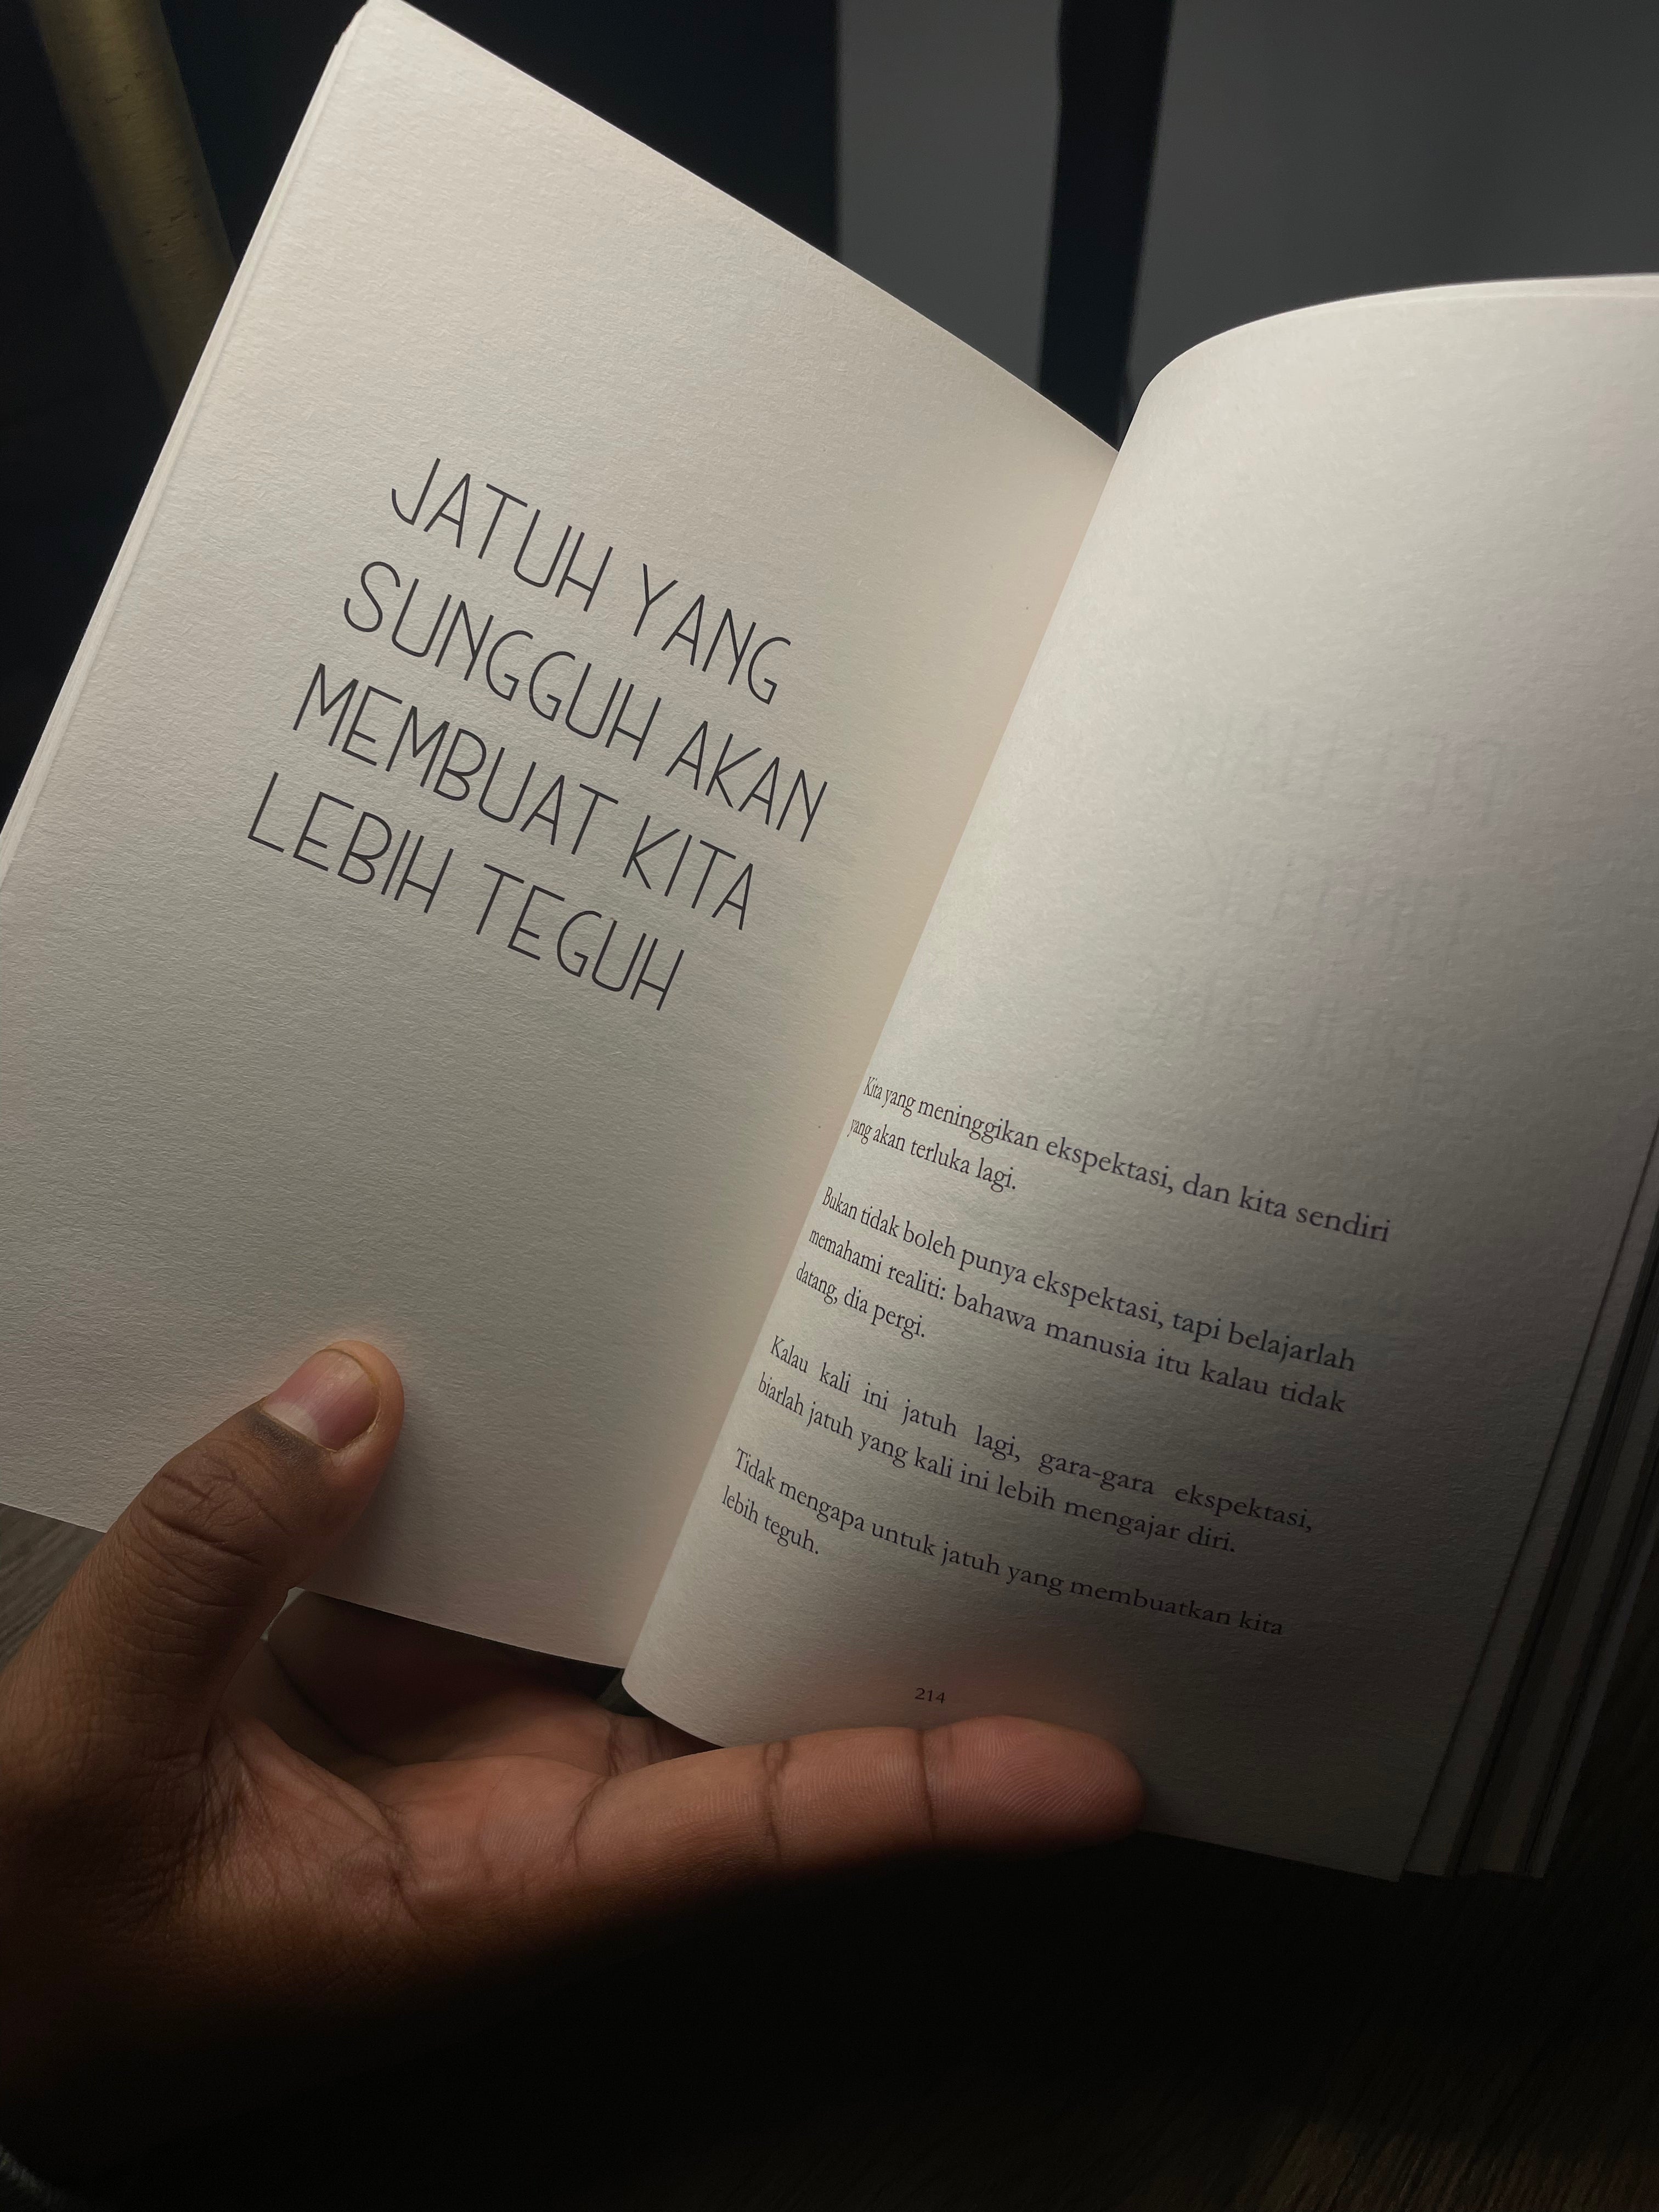 JATUH YANG
SUNGGUH AKAN
MEMBUAT KITA
LEBIH TEGUH
Kita yang meninggikan ekspektasi, dan kita sendiri
yang akan terluka lagi.
Bukan tidak boleh punya ekspektasi, tapi belajarlah
memahami realiti: bahawa manusia itu kalau tidak
datang, dia pergi.
Kalau kali ini jatuh lagi, gara-gara ekspektasi,
biarlah jatuh yang kali ini lebih mengajar diri.
Tidak mengapa untuk jatuh yang membuatkan kita
lebih teguh.
214